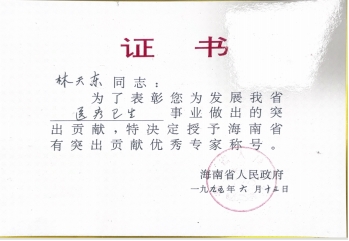 证书
林天东同志：
为了表彰您为发展我省
医疗卫生事业做出的突
出贡献，特决定授予海南省
有突出贡献优秀专家称号。
海南省人民政府
一九九五年六月十二日